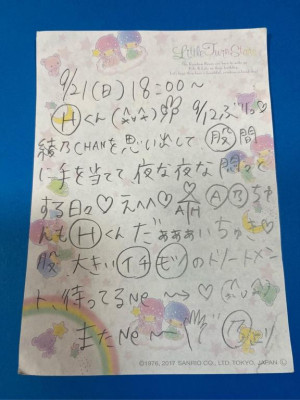 Little Twin Stars
9/21(日)18:00～
Hくん 9/12ぶりっ♡
綾乃CHANを思い出して 股間
に手を当てて 夜な夜な 悶って
する日々♡ えへへ♡ AH ABちゃ
んも Hくん だぁぁぁいちゅき♡
股 大きい イチモツ のトノートメン
ト 待ってるNe ～→♡
またNe ～ 乃より
©1976, 2017 SANRIO CO., LTD. TOKYO, JAPAN